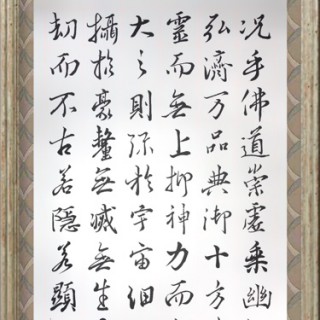 况乎佛道崇虚乘幽
弘济万品典御十方
靈而無上抑神力而
大之則弥於宇宙细
攝於豪釐無滅無生
劫而不古若隐若顯